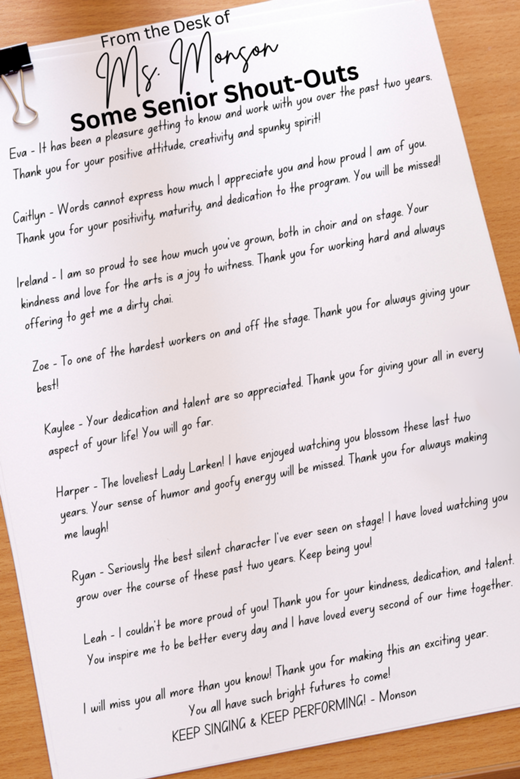 From the Desk of
Ms. Monson
Some Senior Shout-Outs
Eva - It has been a pleasure getting to know and work with you over the past two years.
Thank you for your positive attitude, creativity and spunky spirit!
Caitlyn - Words cannot express how much I appreciate you and how proud I am of you.
Thank you for your positivity, maturity, and dedication to the program. You will be missed!
Ireland - I am so proud to see how much you've grown, both in choir and on stage. Your
kindness and love for the arts is a joy to witness. Thank you for working hard and always
offering to get me a dirty chai.
Zoe - To one of the hardest workers on and off the stage. Thank you for always giving your
best!
Kaylee - Your dedication and talent are so appreciated. Thank you for giving your all in every
aspect of your life! You will go far.
Harper - The loveliest Lady Larken! I have enjoyed watching you blossom these last two
years. Your sense of humor and goofy energy will be missed. Thank you for always making
me laugh!
Ryan - Seriously the best silent character I've ever seen on stage! I have loved watching you
grow over the course of these past two years. Keep being you!
Leah - I couldn't be more proud of you! Thank you for your kindness, dedication, and talent.
You inspire me to be better every day and I have loved every second of our time together.
I will miss you all more than you know! Thank you for making this an exciting year.
You all have such bright futures to come!
KEEP SINGING & KEEP PERFORMING! - Monson